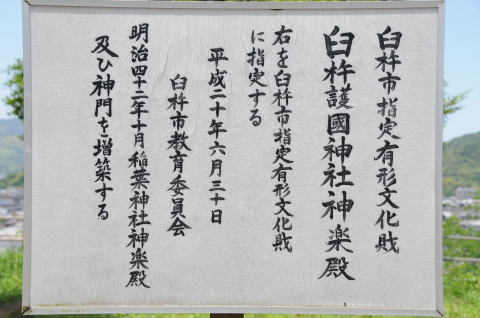 臼杵市指定有形文化財
臼杵護國神社神楽殿
右を臼杵市指定有形文化財
に指定する
平成二十年六月三十日
臼杵市教育委員会
明治四十二年十月稲葉神社神楽殿
及ひ神門を増築する